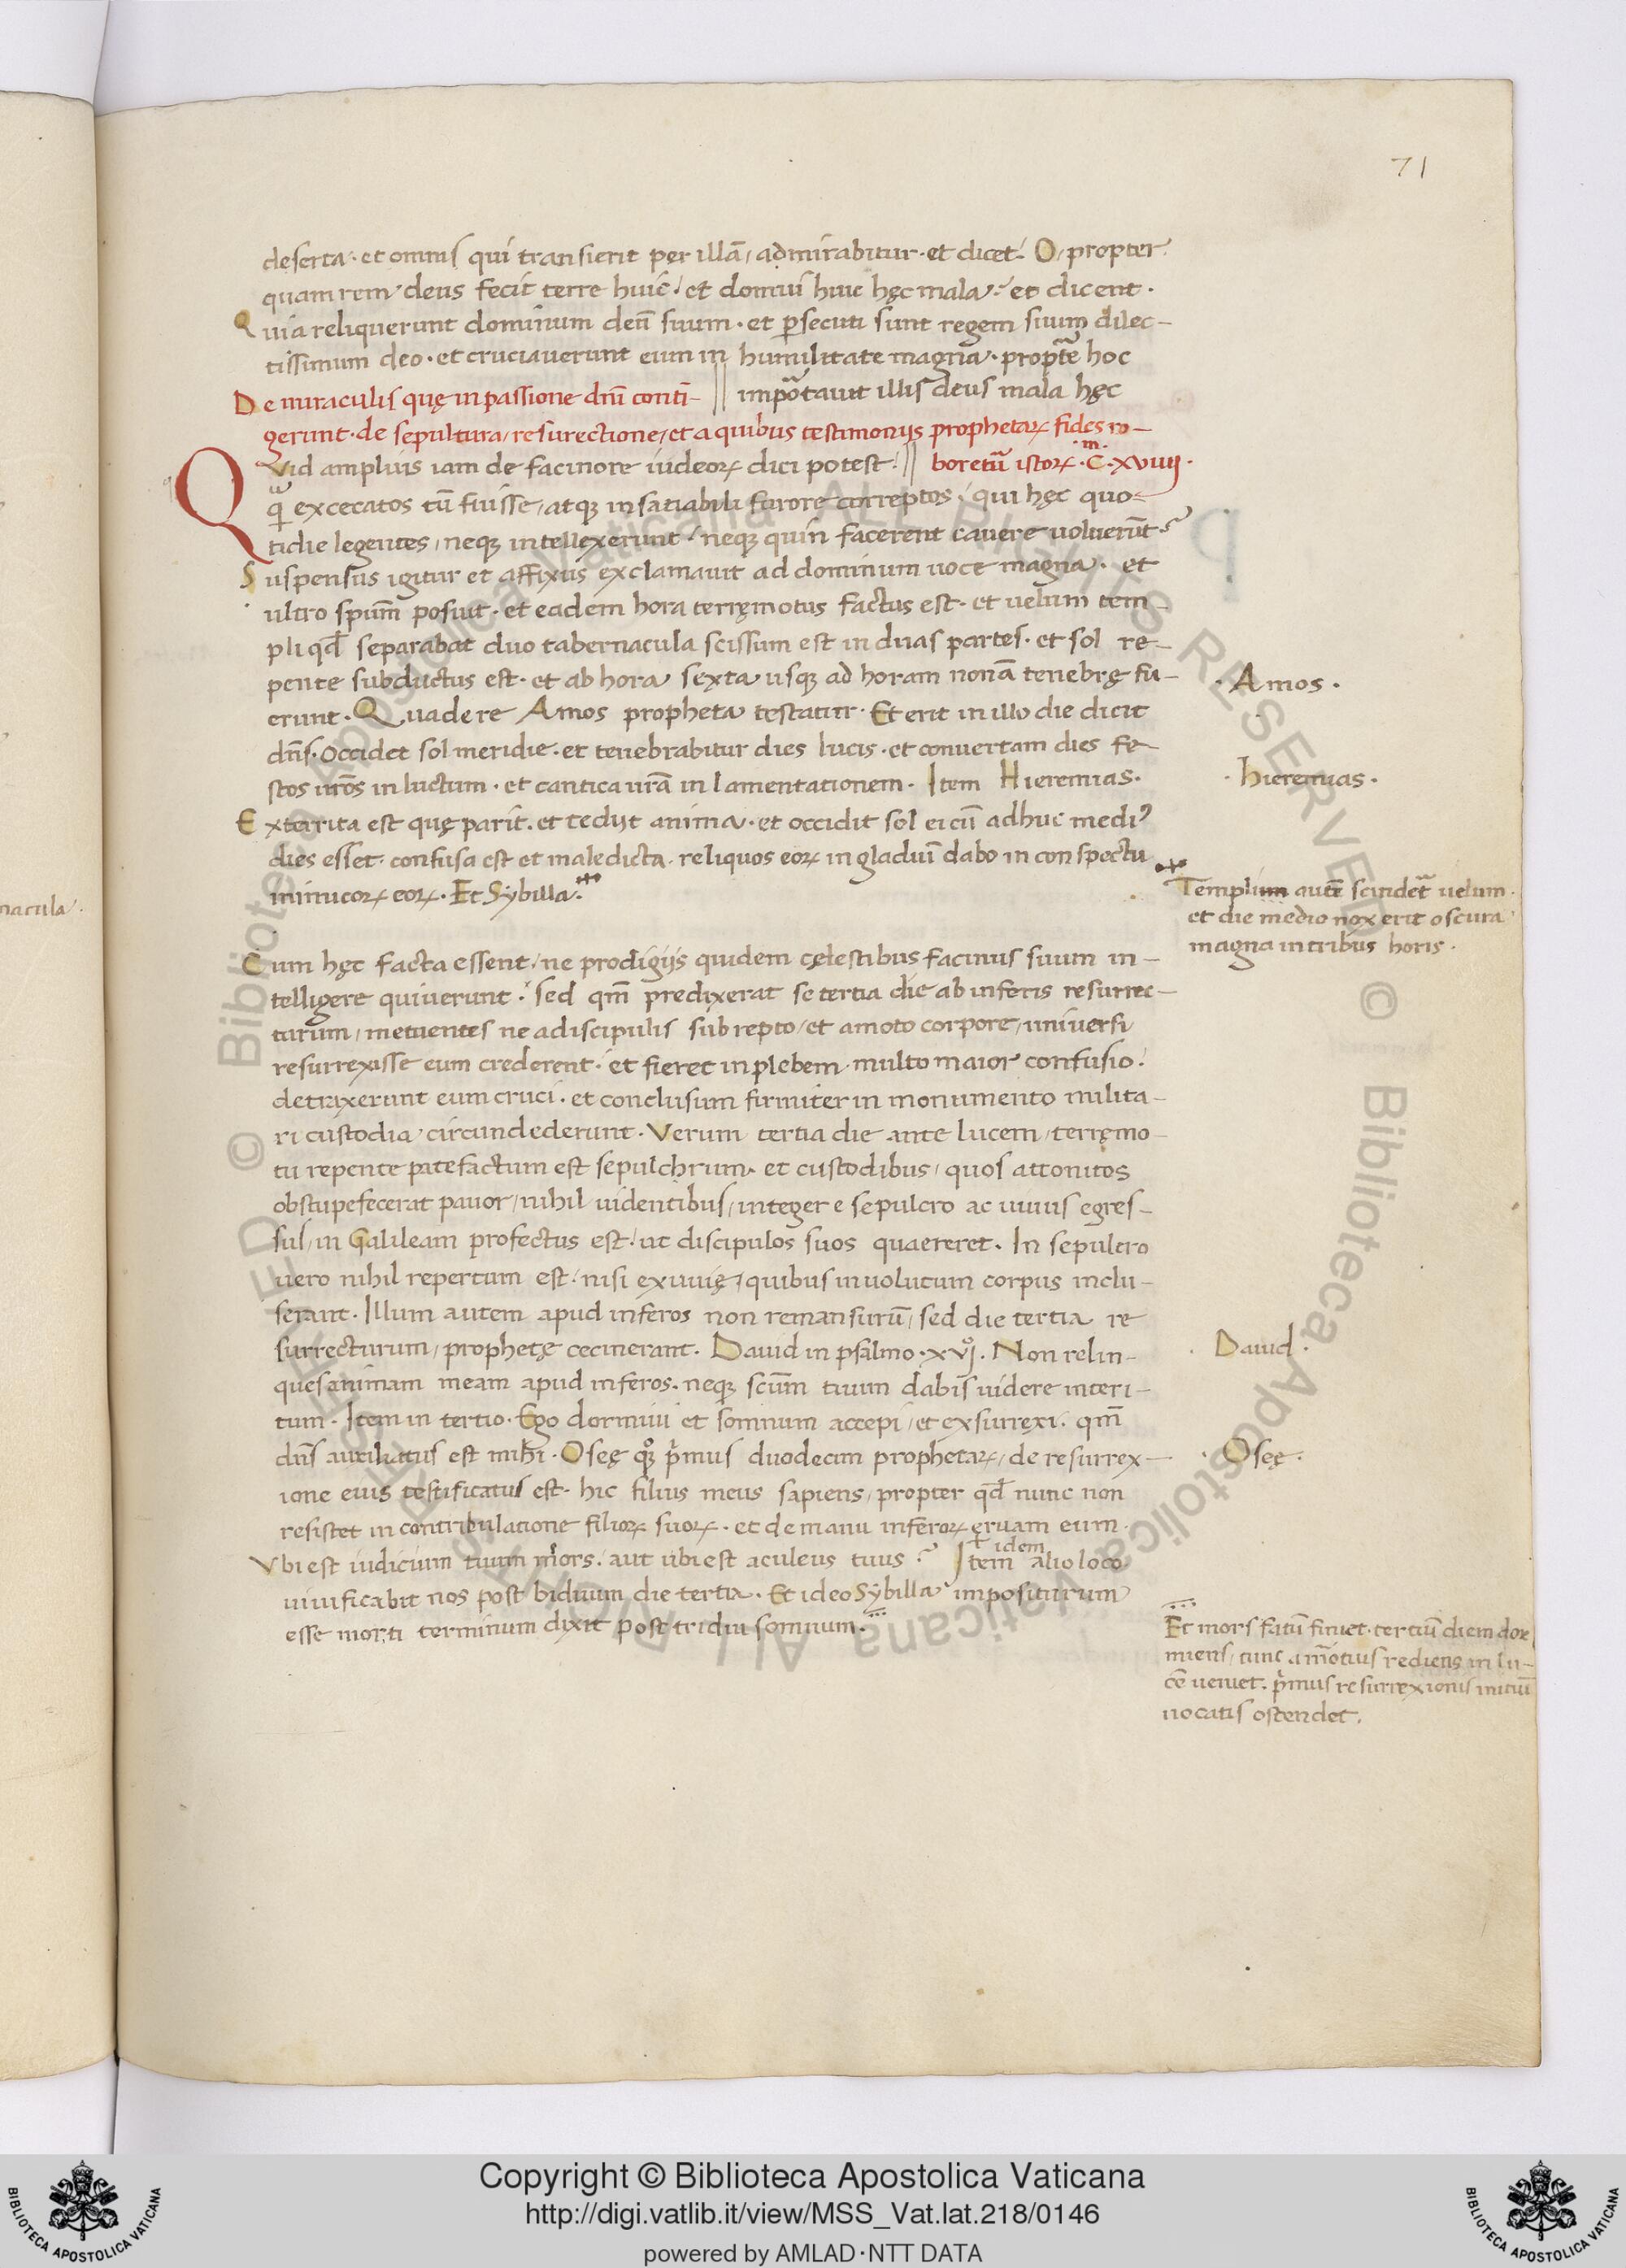 71
deserta. et omnis qui transierit per illā, admirabitur. et dicet. O, propter
quam rem deus fecit terre huic, et domui huic hęc mala? et dicent.
Quia reliquerunt dominum deū suum. et ꝑsecuti sunt regem suum dilec-
tissimum deo. et cruciauerunt eum in humilitate magna. propte hoc
De miraculis quę in passione dñi conti- || impōtauit illis deus mala hęc
gerunt. de sepultura, resurectione, et a quibus testimonijs prophetaꝝ fides ro-
Quid amplius iam de facinore iudeoꝝ dici potest. || boretū istoꝝ .C.m. XVIIII.
q̄ excecatos tū fuisse, atqꝫ insatiabili furore correptos. qui hęc quo-
tidie legentes, neqꝫ intellexerunt, neqꝫ quin facerent cauere uoluerūt?
Suspensus igitur et affixus exclamauit ad dominum uoce magna. et
ultro spūm posuit. et eadem hora terręmotus factus est. et uelum tem-
pli qđ separabat duo tabernacula scissum est in duas partes. et sol re-
pente subductus est. et ab hora sexta usqꝫ ad horam nonā tenebrę fu-
erunt. Qua de re Amos propheta testatur. Et erit in illo die dicit
dñs. occidet sol meridie. et tenebrabitur dies lucis. et conuertam dies fe-
stos ur̄os in luctum. et cantica ur̄a in lamentationem. Item Hieremias.
Exterrita est quę parit. et tedijt anima. et occidit sol ei cū adhuc mediꝰ
dies esset. confusa est et maledicta. reliquos eoꝝ in gladiū dabo in conspectu
inimicoꝝ eoꝝ. Et Sybilla.
Cum hęc facta essent, ne prodigijs quidem cęlestibus facinus suum in-
telligere quiuerunt. sed qm̄ predixerat se tertia die ab inferis resurrec-
turum, metuentes ne a discipulis subrepto, et amoto corpore, uniuersi
resurrexisse eum crederent. et fieret in plebem multo maior confusio.
detraxerunt eum cruci. et conclusum firmiter in monumento milita-
ri custodia circundederunt. Verum tertia die ante lucem, terręmo-
tu repente patefactum est sepulchrum. et custodibus, quos attonitos
obstupefecerat pauor, nihil uidentibus, integer e sepulcro ac uiuus egres-
sus, in Galileam profectus est. ut discipulos suos quaereret. In sepulcro
uero nihil repertum est. nisi exuuię, quibus inuolutum corpus inclu-
serant. Illum autem apud inferos non remansurū, sed die tertia re
surrecturum, prophetę cecinerant. Dauid in psalmo .xvj. Non relin-
ques animam meam apud inferos. neqꝫ scūm tuum dabis uidere interi-
tum. Item in tertio. Ego dormiui et somnum accepi, et exsurrexi. qm̄
dñs auxiliatus est mihi. Oseę qꝫ pͥmus duodecim prophetaꝝ, de resurrex-
ione eius testificatus est. hic filius meus sapiens, propter qđ nunc non
resistet in contribulatione filioꝝ suoꝝ. et de manu inferoꝝ eruam eum.
Vbi est iudicium tuum mors. aut ubi est aculeus tuus? Item idem alio loco
uiuificabit nos post biduum die tertia. Et ideo Sybilla impositurum
esse morti terminum dixit post tridui somnum.
.Amos.
.hieremias.
Templum autē scindet̄ uelum.
et die medio nox erit oscura
magna in tribus horis.
.Dauid.
.Oseę.
Et mors fatū finiet. tertiū diem dor
miens, tunc a mōtuis rediens in lu-
cē ueniet. pͥmus resurrexionis initiū
uocatis ostendet.
nacula.
© Biblioteca Apostolica Vaticana ALL RIGHTS RESERVED © Biblioteca Apostolica Vaticana ALL RIGHTS RESERVED
Copyright © Biblioteca Apostolica Vaticana
http://digi.vatlib.it/view/MSS_Vat.lat.218/0146
powered by AMLAD·NTT DATA
BIBLIOTECA APOSTOLICA VATICANA
BIBLIOTECA APOSTOLICA VATICANA